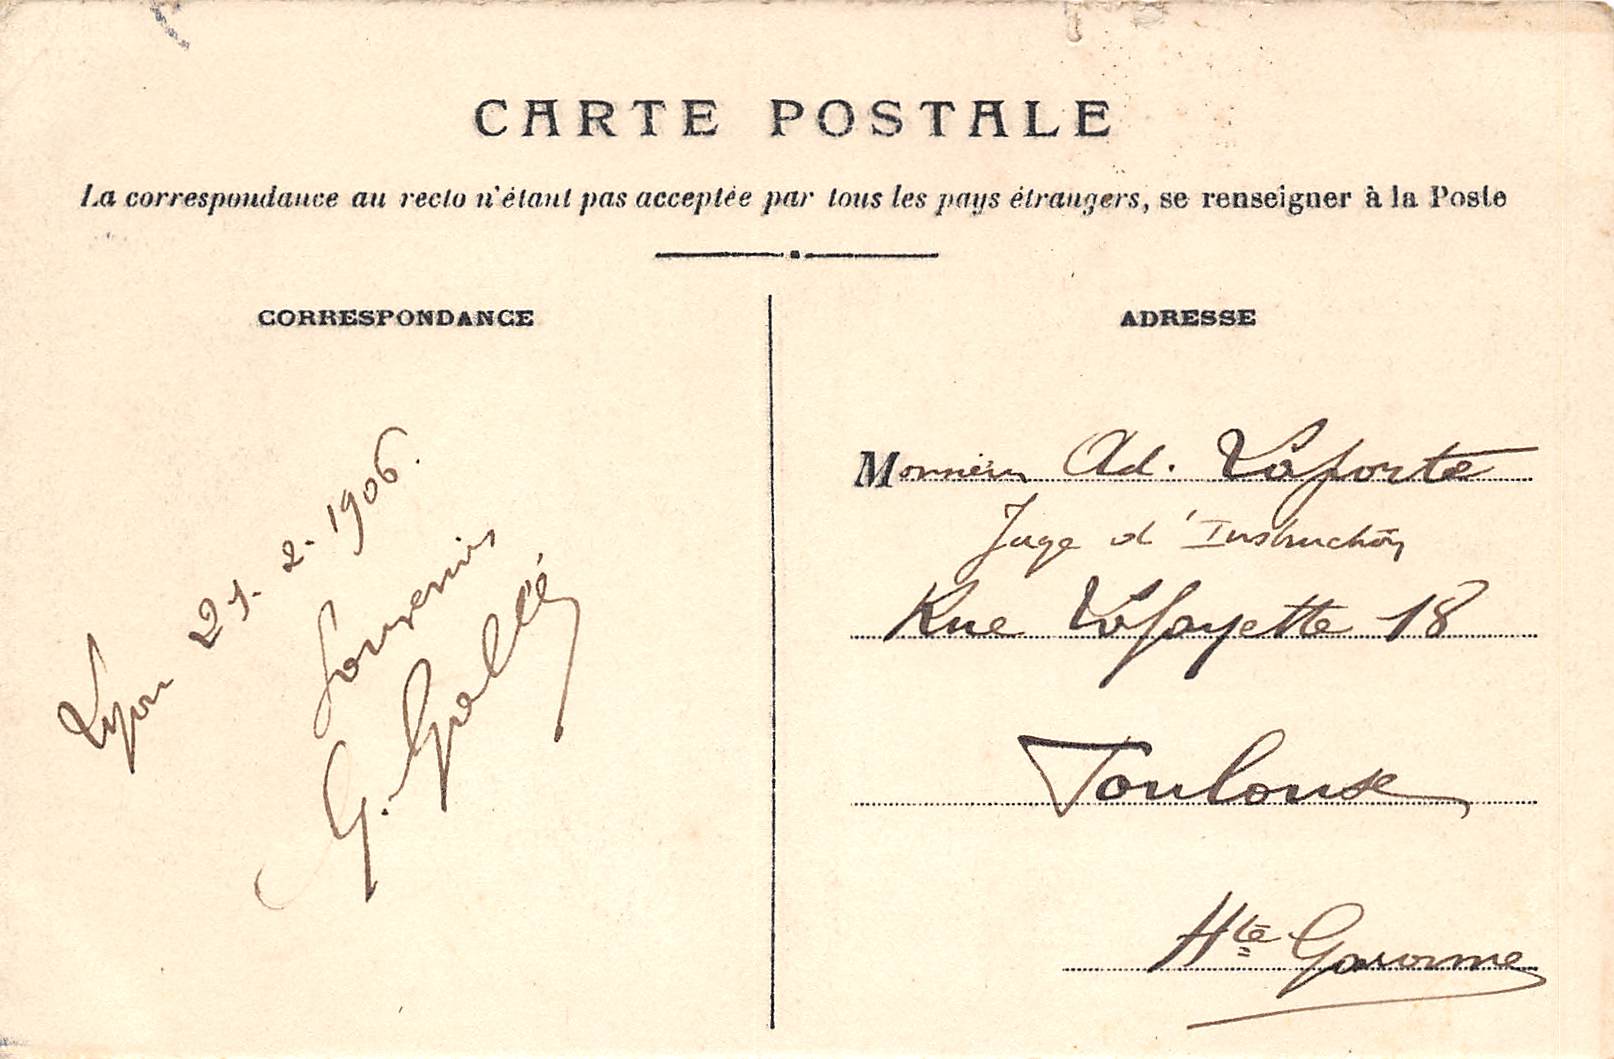 CARTE POSTALE
La correspondance au recto n'étant pas acceptée par tous les pays étrangers, se renseigner à la Poste
CORRESPONDANCE
Lyon 21. 2. 1906.
Souvenirs
G. Gallé
ADRESSE
Monsieur Ad. Laporte
Juge d'Instruction
Rue Lafayette 18
Toulouse
Hte Garonne